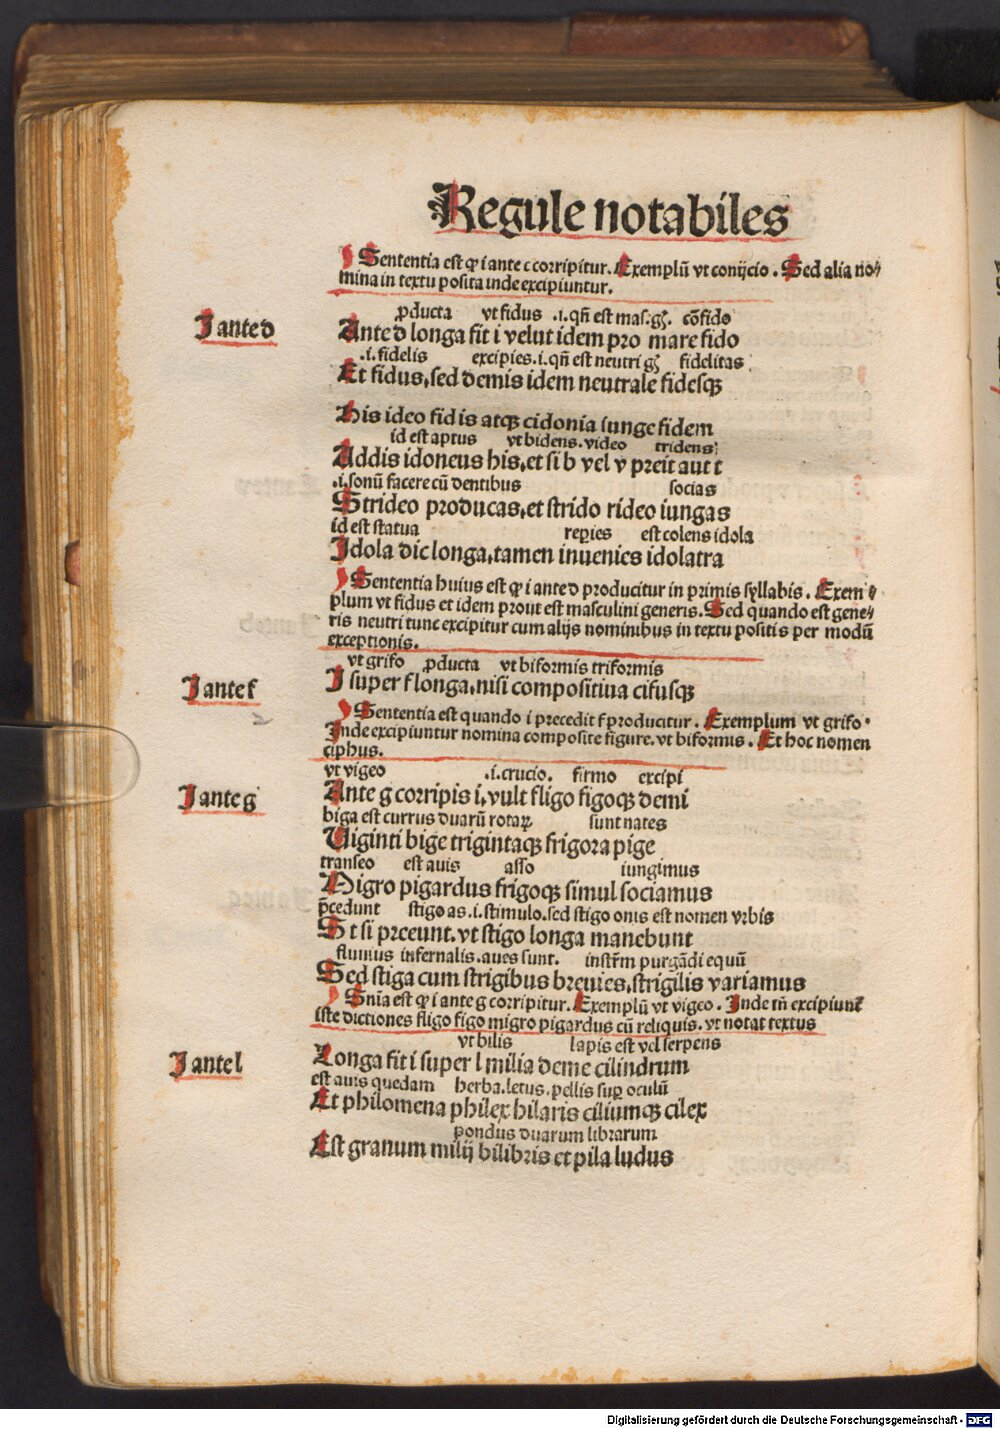 Regule notabiles
Sententia est ꝙ i ante c corripitur. Exemplū vt conijcio. Sed alia no⸗
mina in textu posita inde excipiuntur.
ꝓducta vt fidus .i. qñ est mas. gñ. cōfido
I ante d
Ante d longa fit i velut idem pro mare fido
.i. fidelis excipies .i. qñ est neutri gñ fidelitas
Et fidus, sed demis idem neutrale fidesqꝫ
His ideo fidis atqꝫ cidonia iunge fidem
id est aptus vt bidens. video tridens
Addis idoneus his, et si b vel v preit aut t
.i. sonū facere cū dentibus socias
Strideo producas, et strido rideo iungas
id est statua reꝑies est colens idola
Idola dic longa, tamen inuenies idolatra
Sententia huius est ꝙ i ante d producitur in primis syllabis. Exem⸗
plum vt fidus et idem prout est masculini generis. Sed quando est gene⸗
ris neutri tunc excipitur cum alijs nominibus in textu positis per modū
exceptionis.
vt grifo ꝓducta vt biformis triformis
I ante f
I super f longa, nisi compositiua cifusqꝫ
Sententia est quando i precedit f producitur. Exemplum vt grifo.
Inde excipiuntur nomina composite figure. vt biformis. Et hoc nomen
ciphus.
vt vigeo .i. crucio. firmo excipi
I ante g
Ante g corripis i, vult fligo figoqꝫ demi
biga est currus duarū rotaꝝ sunt nates
Uiginti bige trigintaqꝫ frigora pige
transeo est auis asso iungimus
Migro pigardus frigoqꝫ simul sociamus
p̄cedunt stigo as .i. stimulo. sed stigo onis est nomen vrbis
St si preeunt. vt stigo longa manebunt
fluuius infernalis. aues sunt. instr̄m purgādi equū
Sed stiga cum strigibus breuies, strigilis variamus
Snīa est ꝙ i ante g corripitur. Exemplū vt vigeo. Inde tn̄ excipiunt̄
iste dictiones fligo figo migro pigardus cū reliquis. vt notat textus
vt bilis lapis est vel serpens
I ante l
Longa fit i super l milia deme cilindrum
est auis quedam herba. letus. pellis suꝑ oculū
Et philomena philex hilaris ciliumqꝫ cilex
pondus duarum librarum
Est granum milij bilibris et pila ludus
Digitalisierung gefördert durch die Deutsche Forschungsgemeinschaft - DFG